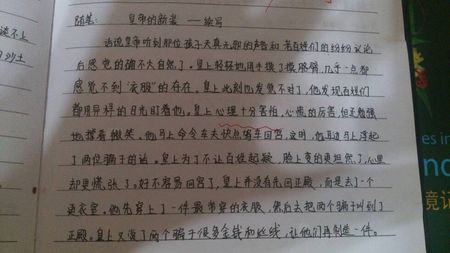 随笔: 皇帝的新装 ——续写
话说皇帝听到那位孩子天真无邪的声音和老百姓们的纷纷议论
后感觉的确不太自然了。皇上轻轻地用手摸了摸胳膊，几乎一点都
感觉不到"衣服"的存在。皇上此刻也发觉不对了，他发现百姓们
都用异样的目光盯着他。皇上心理十分害怕，心慌的厉害，但还勉强
地撑着微笑，他马上命令车夫快点驾车回宫，这时，他耳边马上浮起
了两位骗子的话。皇上为了不让百姓起疑，脸上变的更坦然了，心里
却更慌张了。好不容易回宫了，皇上并没有先回正殿，而是去了一个
更衣室。他先穿上了一件最常穿的衣服，然后去把两个骗子叫到了
正殿。皇上又给了两个骗子很多金钱和丝线，让他们再制造一件。
谈不上
沙土
es in
no
竟记